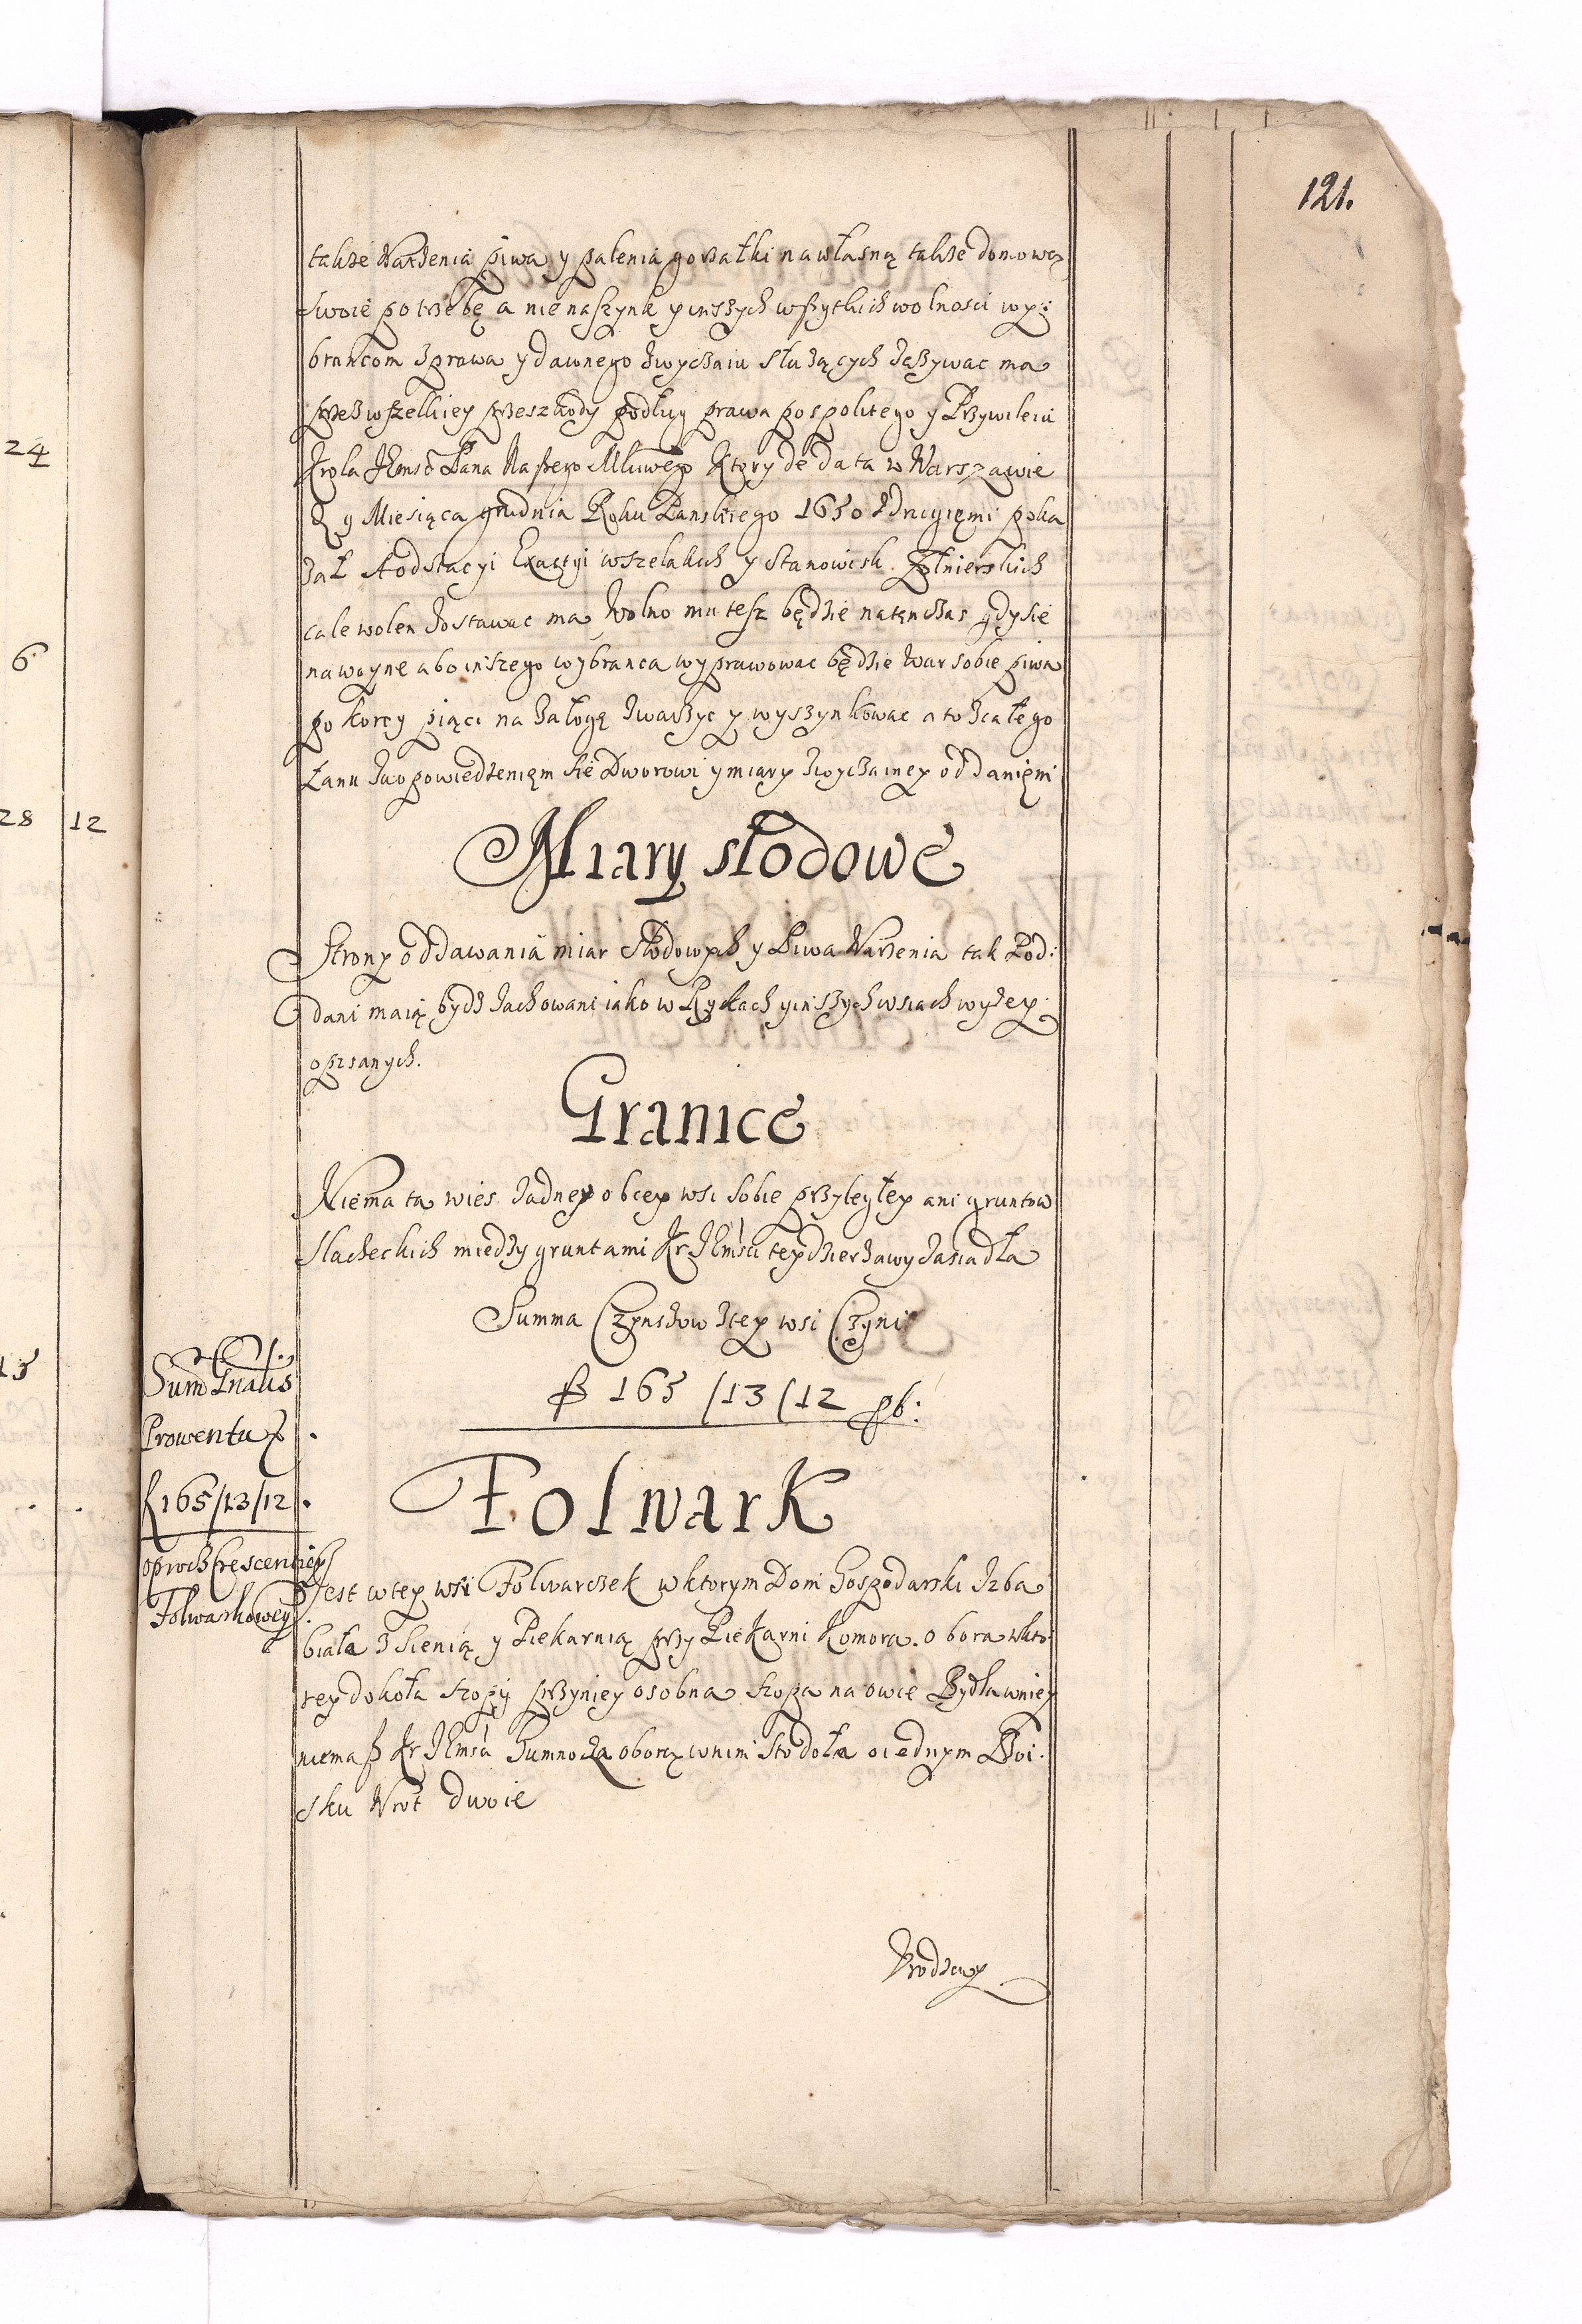 121.
takze Warzenia piwa y palenia gorzałki na własną takze domową
swoie potrzebę a nie na szynk y inszych wszytkich wolnosci wy:
brancom z prawa y dawnego zwyczaiu słuzących zazywac ma
przez wszelkiey przeszkody podług prawa pospolitego y Przywileiu
Krola JEmsci Pana Naszego Młłwego Ktory de data w Warszawie
9 Miesiąca grudnia Roku Panskiego 1650 z drugiemi poka
zał A od stacyi Exactyi wszelakich y Stanowisk Zołnierskich
cale wolen zostawac ma Wolno mu tesz będzie na tęnczas gdy sie
na woynę abo inszego wybranca wyprawowac będzie War sobie piwa
po korcy piąci na załogę zwarzyc y wyszynkowac a to z całego
Łanu za opowiedzenięm sie Dworowi y miary zwyczainey oddanięm
Miary słodowe
Strony oddawania miar Słodowych y Piwa Warzenia tak Pod:
dani maią bydz zachowani iako w Rykach y inszych wsiach wyzey
opisanych.
Granice
Niema ta wies zadney obcey wsi sobie przyległey ani gruntow
slacheckich miedzy gruntami Kr JEmsci tey dzierzawy zasiadła
Summa Czynszow z tey wsi Czyni
ß 165 /13 /12 pb:
Sum Tnalis
Prowentu
ß 165/13/12
oprocz Crescentiey
Folwarkowey
Folwark
Jest w tey wsi Folwarczek w ktorym Dom Gospodarski Izba
biała z sienią y Piekarnią przy Piekarni Komora. obora w kto
rey dokoła szopy przy niey osobna szopa na owce Bydła w niey
niemasz Kr JEmsci Gumno za oborą w nim stodoła o iednym Boi:
sku Wrot dwoie
24
6
28 12
15